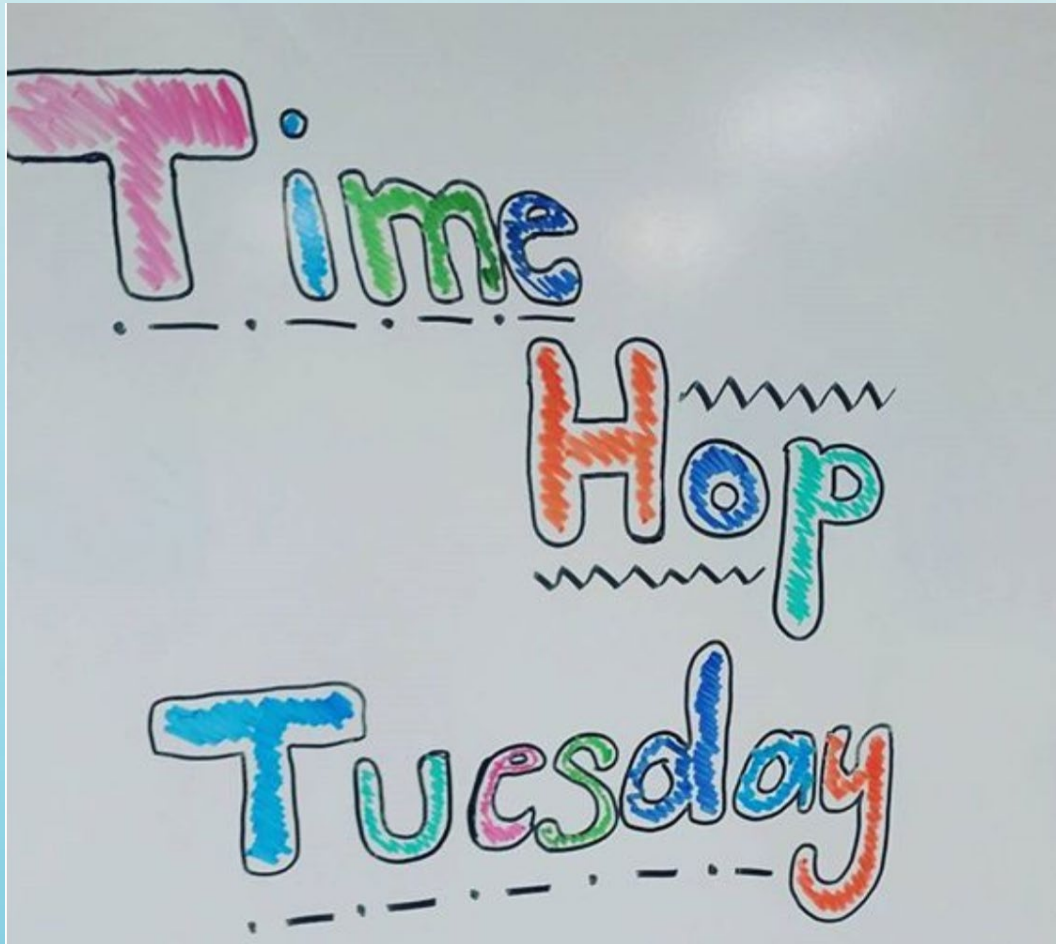 Time
Hop
Tuesday